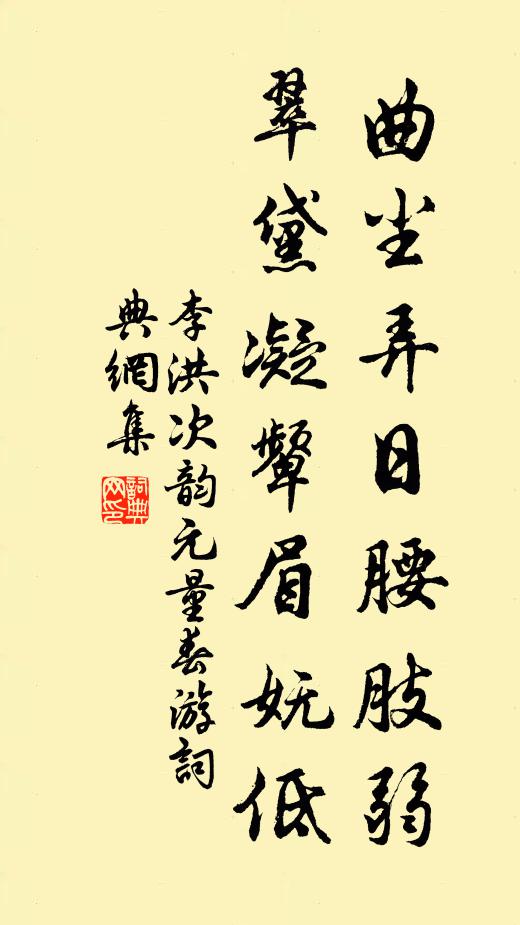 曲尘弄日腰肢弱
翠黛凝顰眉妩低
李洪次韵元量春游詞
典網集
詞典网印